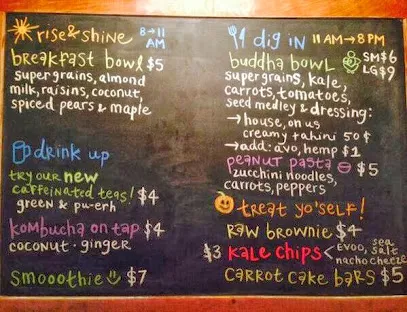 rise & shine 8→11 AM
breakfast bowl $5
supergrains, almond
milk, raisins, coconut,
spiced pears & maple
drink up
try our new
caffeinated teas! $4
green & pu-erh
kombucha on tap $4
coconut · ginger
smooothie $7
dig in 11 AM→8 PM
buddha bowl SM $6
LG $9
supergrains, kale,
carrots, tomatoes,
seed medley & dressing:
→ house, on us
creamy tahini 50¢
→ add: avo, hemp $1
peanut pasta $5
zucchini noodles,
carrots, peppers
treat yo'self!
raw brownie $4
$3 kale chips < EVOO, sea salt
nacho cheeze
carrot cake bars $5